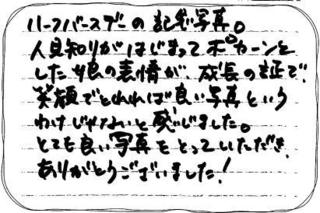 ハーフバースデーの記念写真。
人見知りがはじまってポカーンと
した娘の表情が、成長の証で、
笑顔でとれれば良い写真という
わけじゃないと感じました。
とても良い写真をとっていただき、
ありがとうございました！